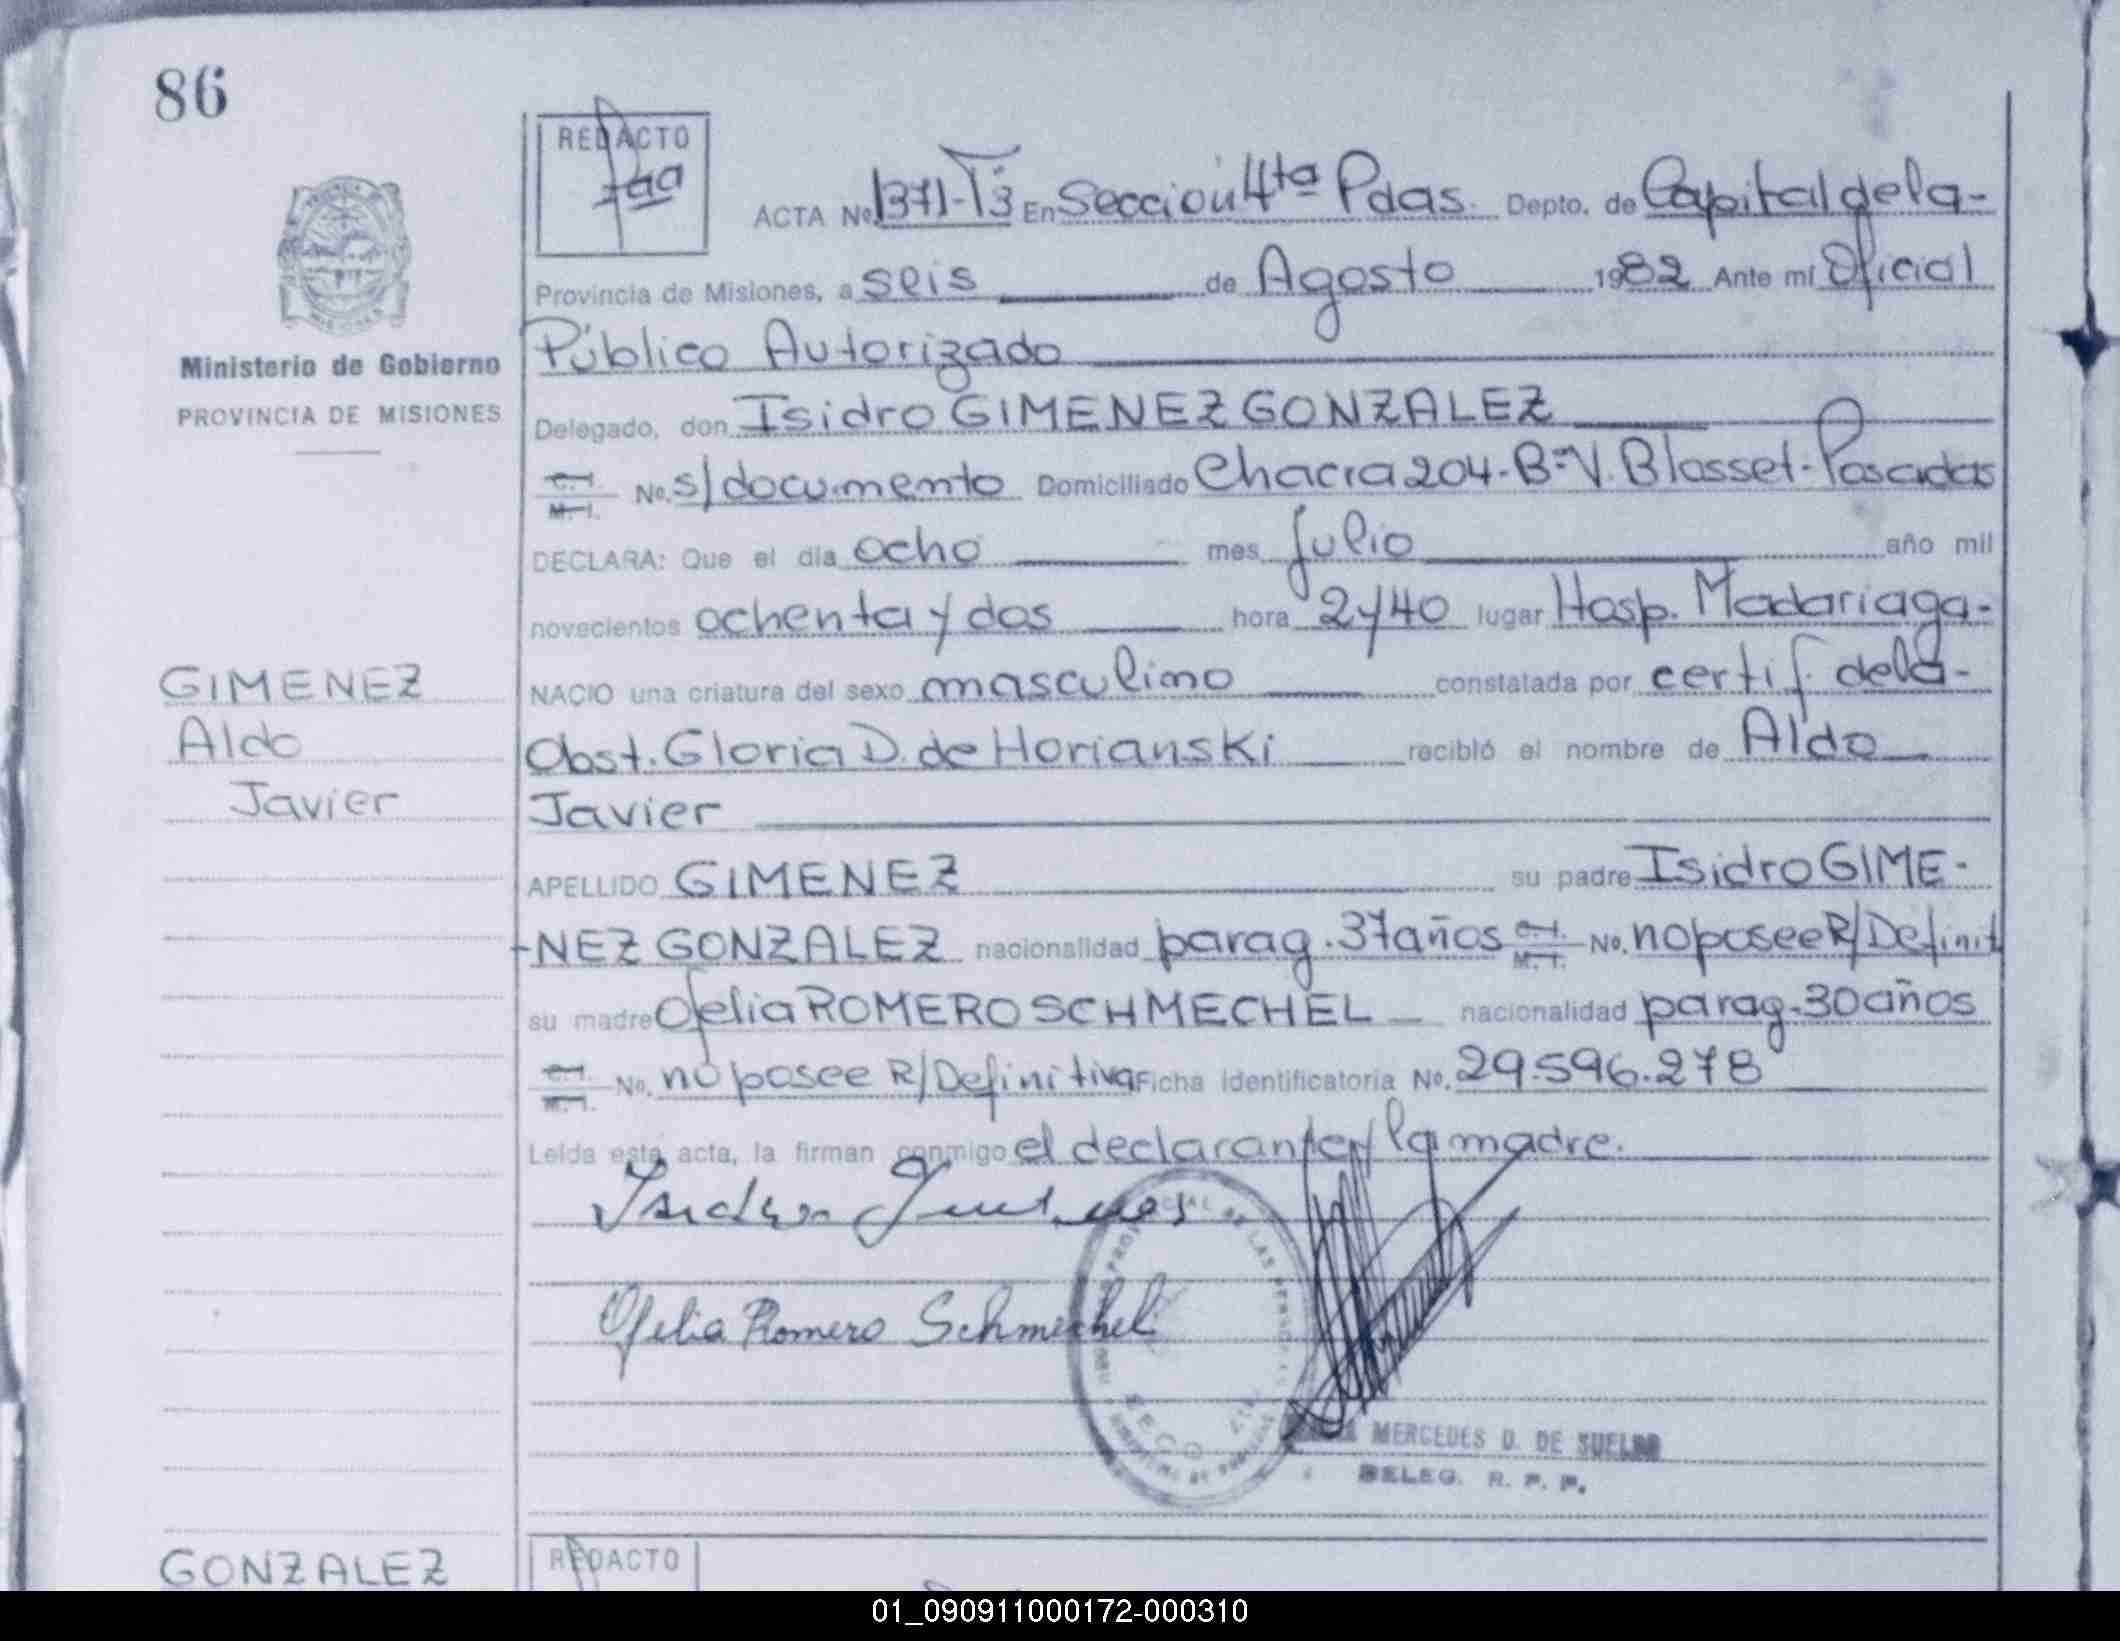 86
REDACTO
ACTA No. 1371-T3 En Sección 4ta Pdas. Depto. de Capital de la-
Provincia de Misiones, a seis de Agosto 1982 Ante mí Oficial
Público Autorizado
Ministerio de Gobierno
PROVINCIA DE MISIONES
Delegado, don Isidro GIMENEZ GONZALEZ
C. I. M. I. No. s/documento Domiciliado Chacra 204-Bº V. Blosset-Posadas
DECLARA: Que el día ocho mes Julio año mil
novecientos ochenta y dos hora 2y40 lugar Hosp. Madariaga-
NACIO una criatura del sexo masculino constatada por certif. de la-
Obst. Gloria D. de Horianski recibió el nombre de Aldo
Javier
GIMENEZ
Aldo
Javier
APELLIDO GIMENEZ su padre Isidro GIME-
-NEZ GONZALEZ nacionalidad parag. 37 años C. I. M. I. No. no posee R/Definit
su madre Ofelia ROMERO SCHMECHEL nacionalidad parag. 30 años
C. I. M. I. No. no posee R/Definitiva Ficha identificatoria No. 29.596.278
Leída esta acta, la firman conmigo el declarante y la madre.
Ofelia Romero Schmechel
MERCEDES D. DE
DELEG. R. P. P.
GONZALEZ
REDACTO
01_090911000172-000310